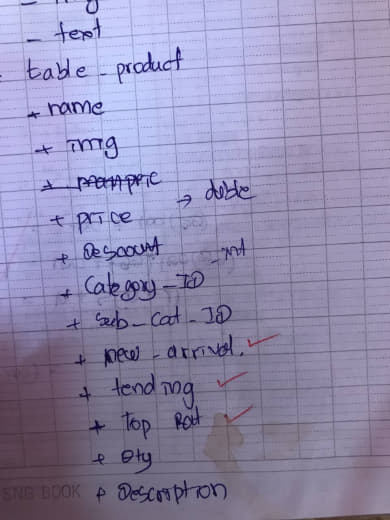 - text
table - product
+ name
+ img
+ price → duble
+ Descount - int
+ Category - ID
+ Sub - Cat - ID
+ new - arrival. ✓
+ tending ✓
+ Top ✓
+ Qty
SNG BOOK + Description